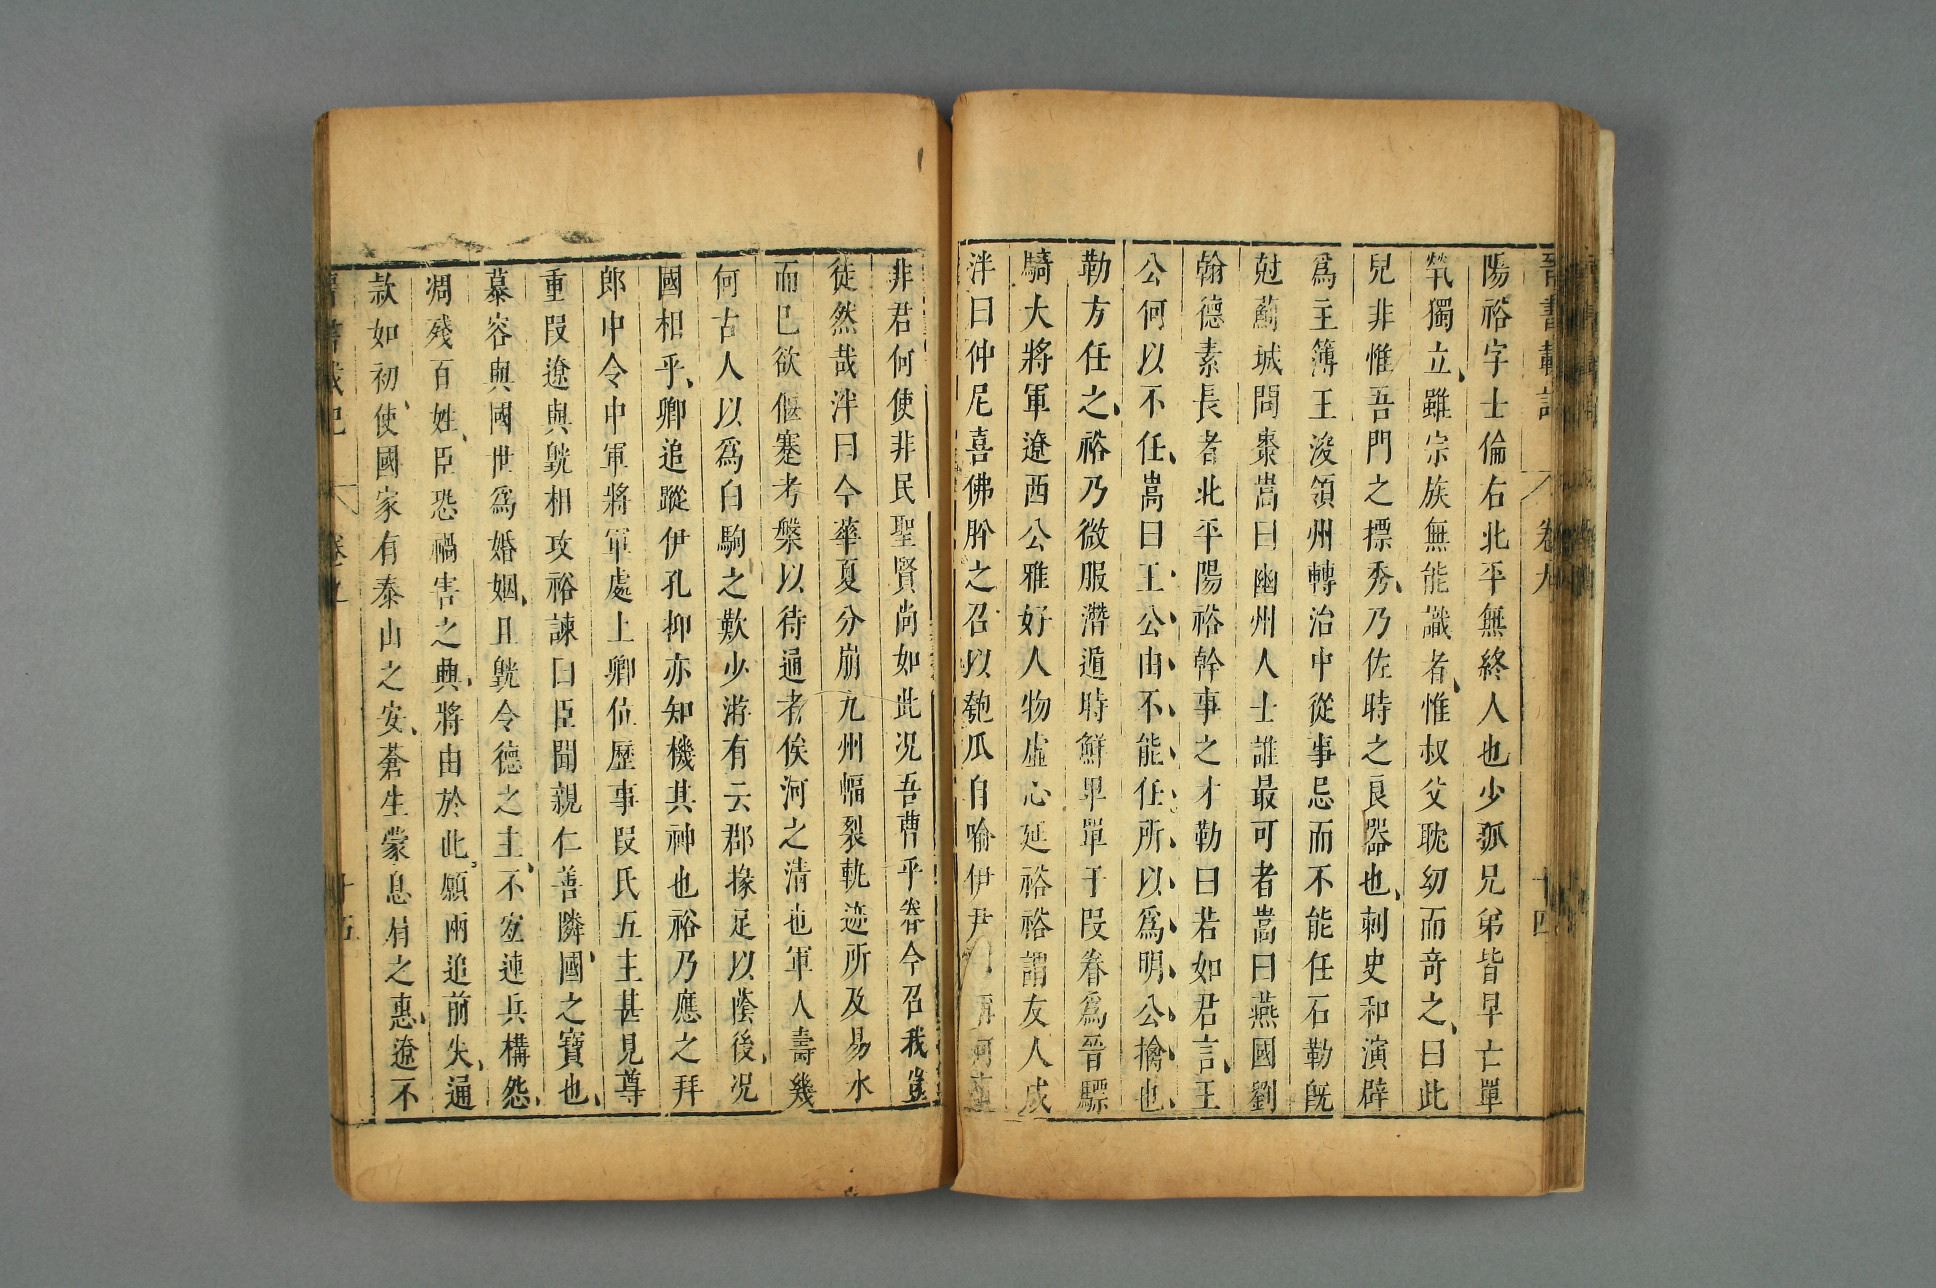 晉書載記 卷九 十四
陽裕字士倫右北平無終人也少孤兄弟皆早亡單
煢獨立雖宗族無能識者惟叔父耽幼而奇之曰此
兒非惟吾門之標秀乃佐時之良器也刺史和演辟
爲主簿王浚領州轉治中從事忌而不能任石勒旣
尅薊城問棗嵩曰幽州人士誰最可者嵩曰燕國劉
翰德素長者北平陽裕幹事之才勒曰若如君言王
公何以不任嵩曰王公由不能任所以爲明公擒也
勒方任之裕乃微服潛遁時鮮卑單于段眷爲晉驃
騎大將軍遼西公雅好人物虛心延裕裕謂友人成
泮曰仲尼喜佛肸之召以匏瓜自喻伊尹
非君何使非民聖賢尚如此况吾曹乎眷今召我豈
徒然哉泮曰今華夏分崩九州幅裂軌迹所及易水
而已欲偃蹇考槃以待通者俟河之清也軍人壽幾
何古人以爲白駒之歎少游有云郡掾足以蔭後况
國相乎卿追蹤伊孔抑亦知機其神也裕乃應之拜
郎中令中軍將軍處上卿位歷事段氏五主甚見尊
重段遼與皝相攻裕諫曰臣聞親仁善隣國之寶也
慕容與國世爲婚姻且皝令德之主不宜連兵構怨
凋殘百姓臣恐禍害之興將由於此願兩追前失通
款如初使國家有泰山之安蒼生蒙息肩之惠遼不
晉書載記 卷九 十五